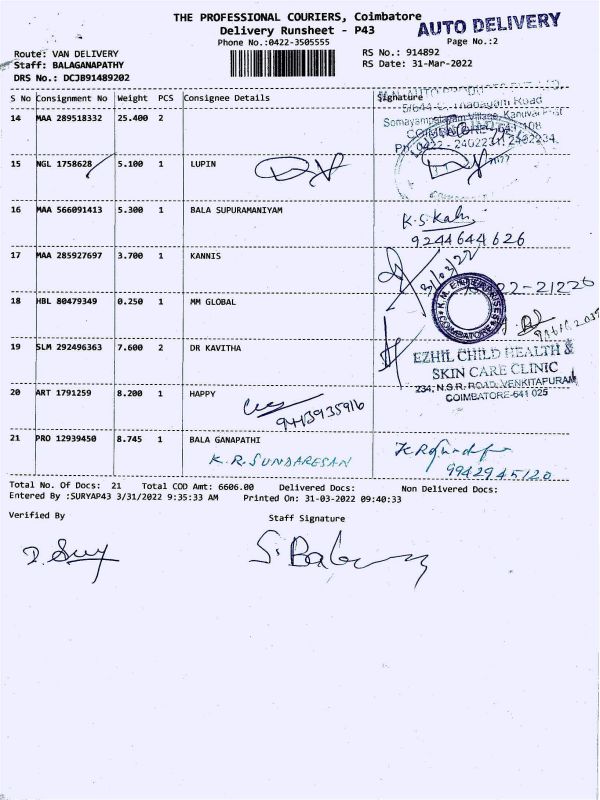 THE PROFESSIONAL COURIERS, Coimbatore
AUTO DELIVERY
Delivery Runsheet - P43
Phone No.:0422-3505555
Page No.:2
Route: VAN DELIVERY
RS No.: 914892
Staff: BALAGANAPATHY
RS Date: 31-Mar-2022
DRS No.: DCJB91489202
S No Consignment No Weight PCS Consignee Details Signature
14 MAA 289518332 25.400 2
Somayampalayam Village, Kanuvai Post
COIMBATORE
Ph: 0422 - 2402231, 2402234
15 NGL 1758628 5.100 1 LUPIN
16 MAA 566091413 5.300 1 BALA SUPURAMANIYAM
9244644626
17 MAA 285927697 3.700 1 KANNIS
31/03/22
K.M. ENTERPRISES
COIMBATORE
18 HBL 80479349 0.250 1 MM GLOBAL
19 SLM 292496363 7.600 2 DR KAVITHA
EZHIL CHILD HEALTH &
SKIN CARE CLINIC
234, N.S.R. ROAD, VENKITAPURAM
COIMBATORE-641 025
20 ART 1791259 8.200 1 HAPPY
9443935916
21 PRO 12939450 8.745 1 BALA GANAPATHI
K.R. SUNDARESAN
9942945120
Total No. Of Docs: 21 Total COD Amt: 6606.00 Delivered Docs: Non Delivered Docs:
Entered By :SURYAP43 3/31/2022 9:35:33 AM Printed On: 31-03-2022 09:40:33
Verified By
Staff Signature